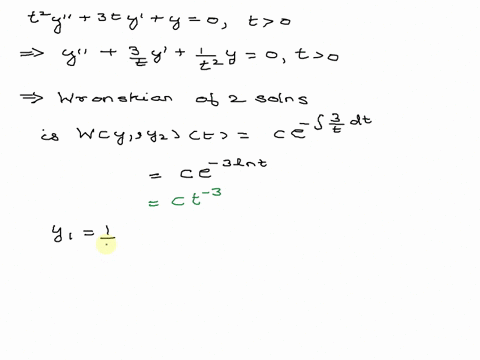 t²y'' + 3ty' + y = 0, t > 0
⇒ y'' + 3/t y' + 1/t² y = 0, t > 0
⇒ Wronskian of 2 solns
is W(y₁, y₂)(t) = c e^(-∫ 3/t dt)
= c e^(-3 ln t)
= c t⁻³
y₁ = 1/